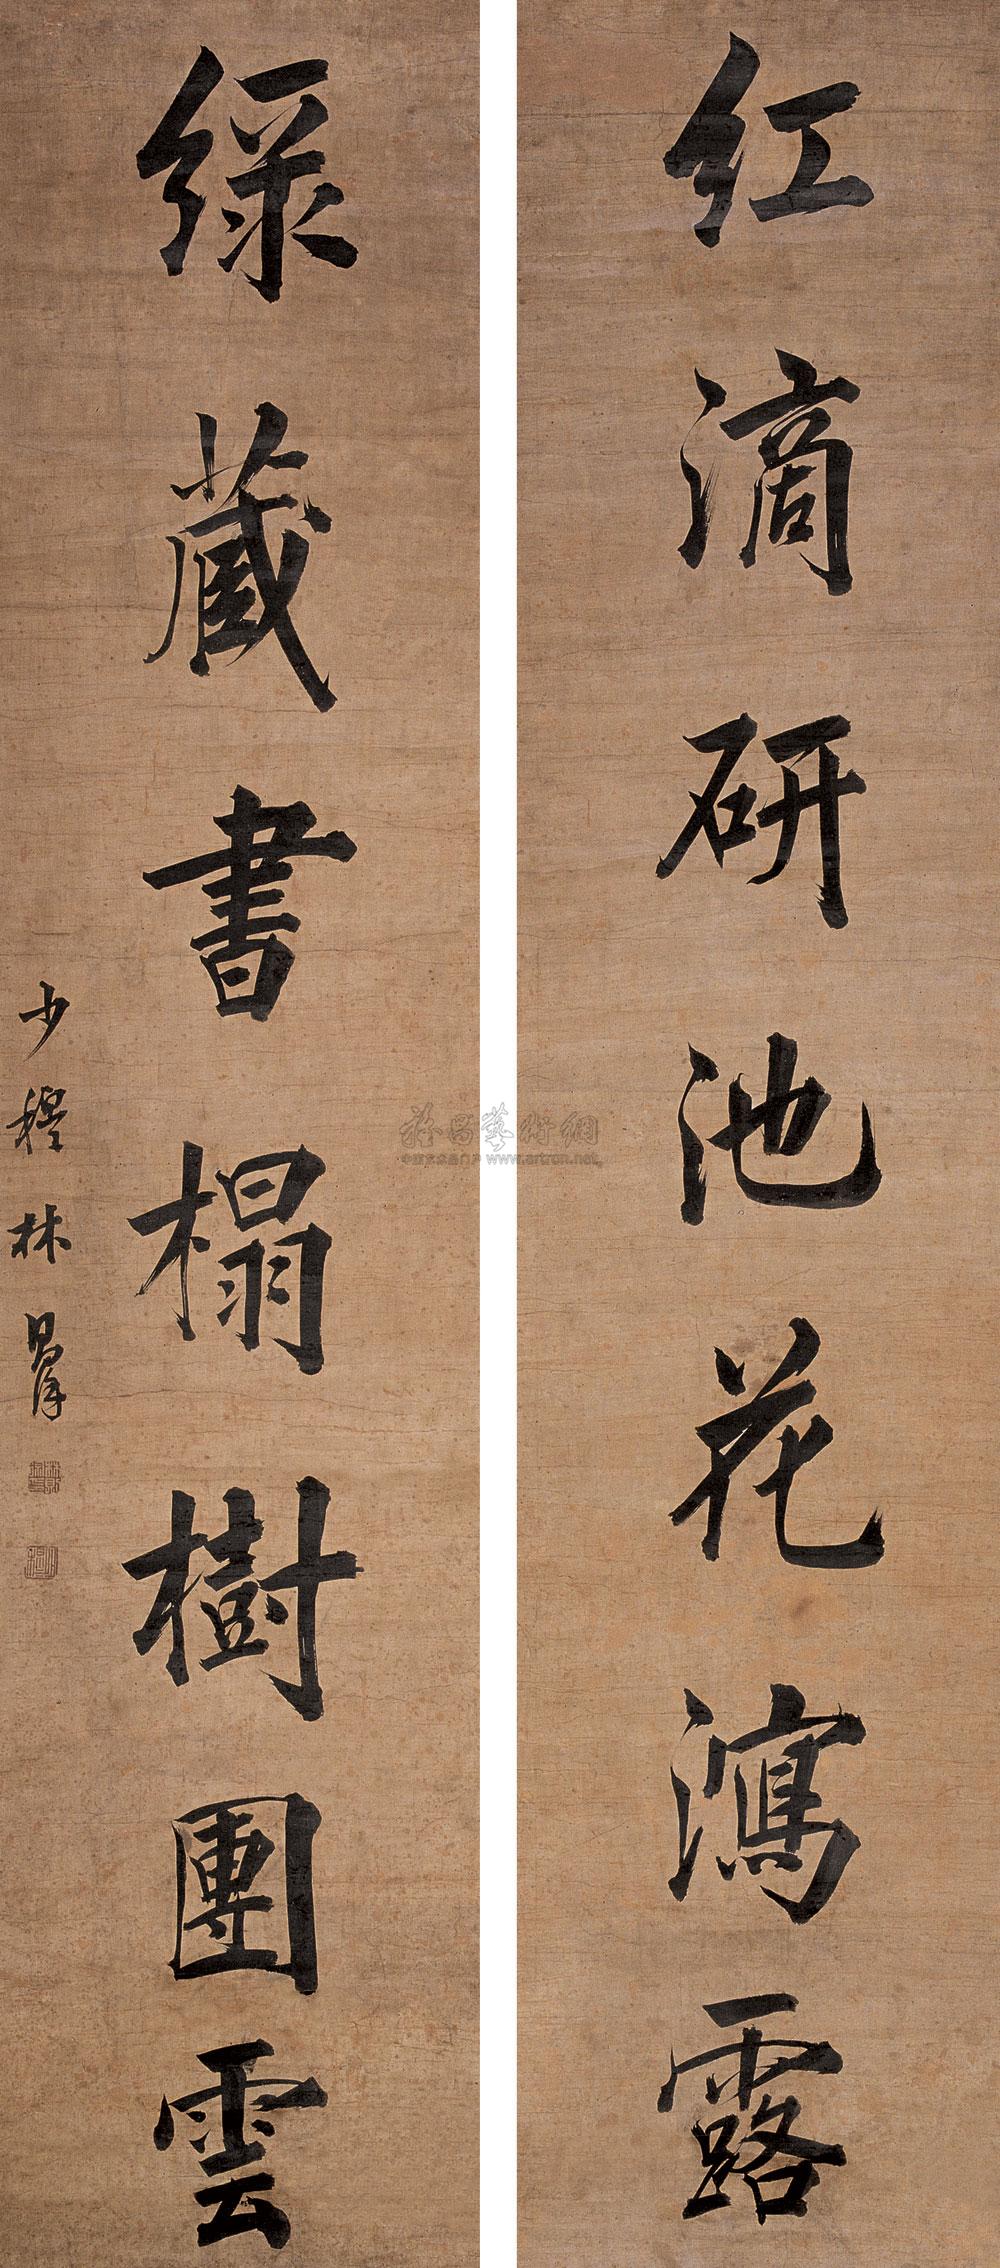 红滴研池花瀉露
緑藏書榻樹團雲
少穆林
雅昌藝術網
www.artron.net